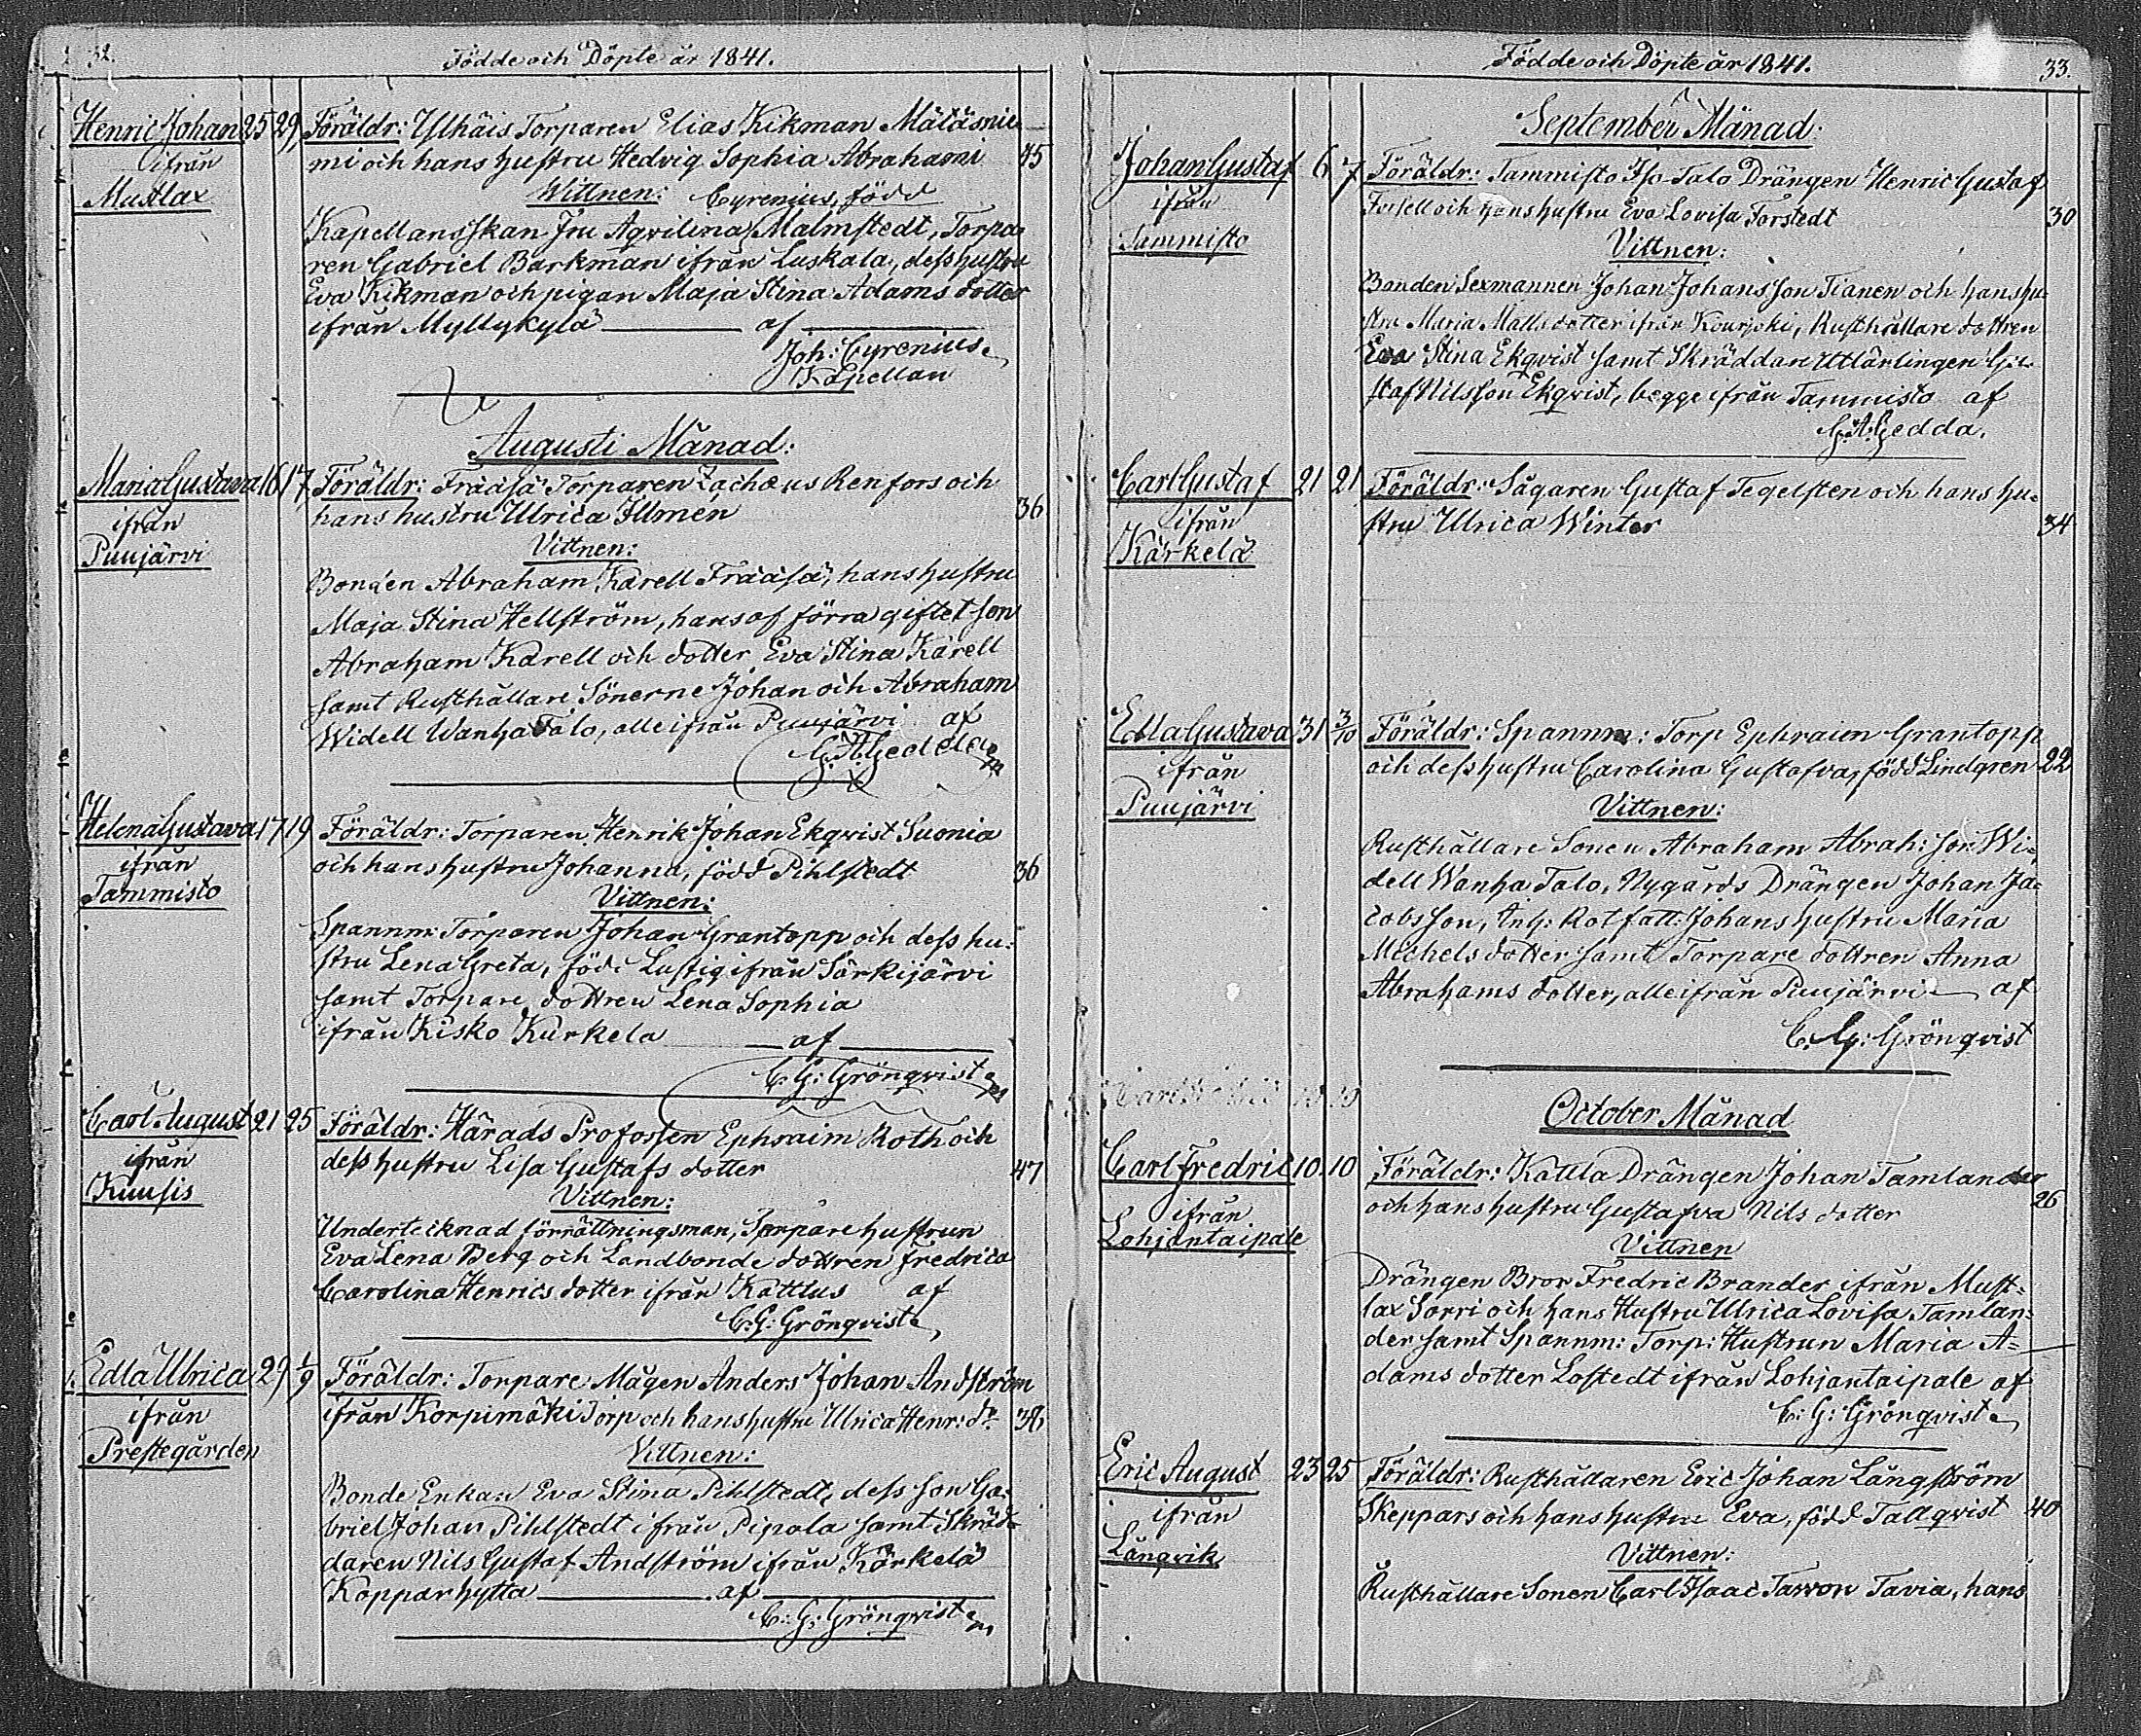 32.
Födde och Döpte år 1841.
Henric Johan 25 29 Föräldr: Ylhäis Torparen Elias Kikman Mätäsnie
ifrån mi och hans hustru Hedvig Sophia Abrahami 45
Mustlax Wittnen: Cyrenius, född
Kapellansskan Fru Aqvilina Malmstedt, Torpa
ren Gabriel Barkman ifrån Luskala, dess hustru
Eva Kikman och pigan Maja Stina Adams dotter
ifrån Myllykylä af
Joh: Cyrenius
Kapellan
Augusti Månad:
Maria Gustava 16 17 Föräldr: Frääsä Torparen Zachæus Renfors och
ifrån hans hustru Ulrica Illmén 36
Puujärvi Vittnen:
Bonden Abraham Karell Frääsä, hans hustru
Maja Stina Hellström, hans af förra giftet son
Abraham Karell och dotter Eva Stina Karell
samt Rusthållare Sönerne Johan och Abraham
Widell Wanha Talo, alle ifrån Puujärvi af
G. A. Gedda
Helena Gustava 17 19 Föräldr: Torparen Henrik Johan Ekqvist Suonia
ifrån och hans hustru Johanna, född Pihlstedt 36
Tammisto Vittnen:
Spannm: Torparen Johan Grantopp och dess hu:
stru Lena Greta, född Lustig ifrån Särkijärvi
samt Torpare dottren Lena Sophia
ifrån Kisko Kurkela af
C. G: Grönqvist
Carl August 21 25 Föräldr: Härads Profossen Ephraim Roth och
ifrån dess hustru Lisa Gustafs dotter 47
Kuusis Vittnen:
Undertecknad förrättningsman, Torpare hustrun
Eva Lena Berg och Landbonde dottren Fredrica
Carolina Henrics dotter ifrån Kattlus af
C. G: Grönqvist
Edla Ulrica 29 1/9 Föräldr: Torpare Mågen Anders Johan Andström
ifrån ifrån Korpimäki Torp och hans hustru Ulrica Henr: dr 38
Prestegården Vittnen:
Bonde Enkan Eva Stina Pihlstedt, dess son Ga:
briel Johan Pihlstedt ifrån Pipola samt Skräd:
daren Nils Gustaf Andström ifrån Kärkelä
Kopparhytta af
C: G: Grönqvist
Födde och Döpte år 1841.
33.
September Månad:
Johan Gustaf 6 7 Föräldr: Tammisto Iso Talo Drängen Henric Gustaf
ifrån Forsell och hans hustru Eva Lovisa Forstedt 30
Tammisto Vittnen:
Bonden Sexmannen Johan Johansson Tianen och hans hu:
stru Maria Matts dotter ifrån Kourjoki, Rusthållare dottren
Eva Stina Ekqvist samt Skräddare Utlärlingen Gu:
staf Nilsson Ekqvist, begge ifrån Tammisto af
G. A. Gedda.
Carl Gustaf 21 21 Föräldr: Sågaren Gustaf Tegelsten och hans hu:
ifrån stru Ulrica Winter 34
Kärkelä
Edla Gustava 31 3/10 Föräldr: Spannm: Torp Ephraim Grantopp
ifrån och dess hustru Carolina Gustafva, född Lindgren 22
Puujärvi Vittnen:
Rusthållare Sonen Abraham Abrah: son Wi:
dell Wanha Talo, Nygårds Drängen Johan Ja:
cobsson, Inh: Rotfatt: Johans hustru Maria
Michels dotter samt Torpare dottren Anna
Abrahams dotter, alle ifrån Puujärvi af
C. G: Grönqvist
October Månad
Carl Fredric 10. 10 Föräldr: Kattla Drängen Johan Tamlander
ifrån och hans hustru Gustafva Nils dotter 26
Lohjantaipale Vittnen
Drängen Bror Fredric Brander ifrån Must:
lax Sorri och hans Hustru Ulrica Lovisa Tamlan:
der samt Spannm: Torp: Hustrun Maria A=
dams dotter Lostedt ifrån Lohjantaipale af
C: G: Grönqvist
Eric August 23 25 Föräldr: Rusthållaren Eric Johan Långström
ifrån Skeppars och hans hustru Eva, född Tallqvist 40
Långvik Vittnen:
Rusthållare Sonen Carl Isaac Tarvon Tavia, hans